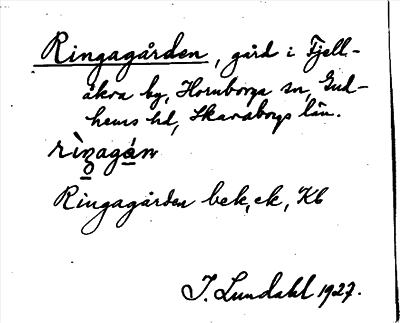 Ringagården, gård i Fjell-
åkra by, Hornborga sn, Gud-
hems hd, Skaraborgs län.
rìŋagán
Ringagården bek, ek, Kb
I. Lundahl 1927.